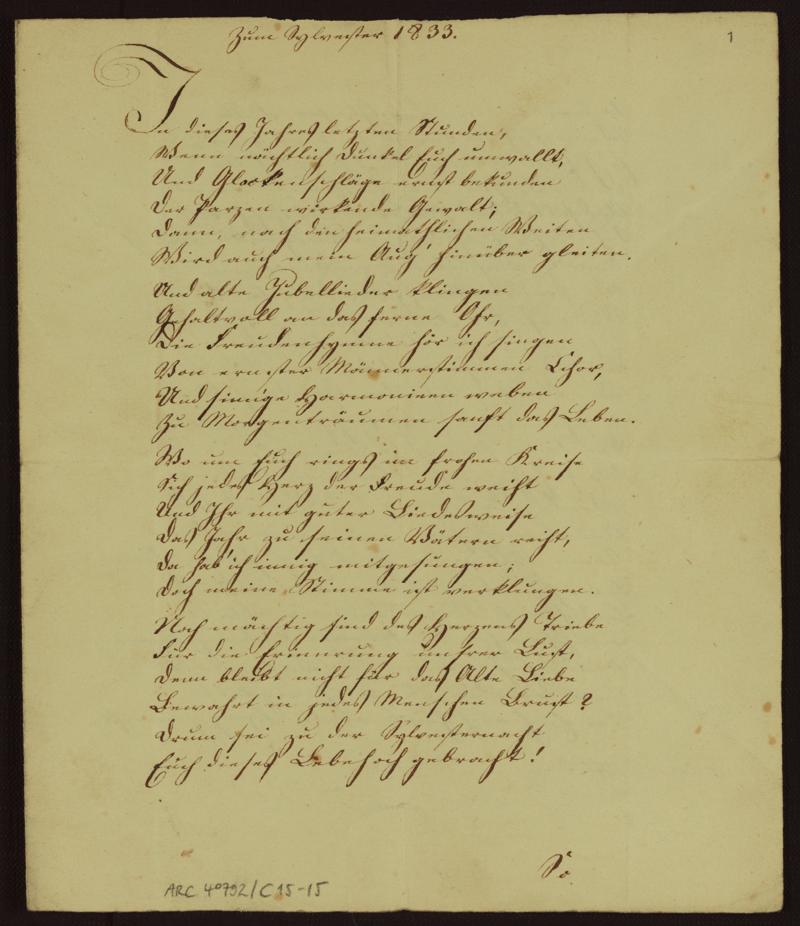 Zum Sylvester 1833.
1
In dieses Jahres letzten Stunden,
Wenn nächtlich Dunkel Euch umwallt,
Und Glockenschläge ernst bekunden
Der Parzen wirkende Gewalt;
Dann, nach den heimathlichen Weiten
Wird auch mein Aug' hinüber gleiten.
Und alte Jubellieder klingen
Gehaltvoll an das ferne Ohr,
Die Freudenhymne hör ich singen
Von ernster Männerstimmen Chor,
Und sinnige Harmonieen weben
Zu Morgenträumen sanft das Leben.
Wo um Euch rings im frohen Kreise
Sich jedes Herz der Freude weiht
Und Ihr mit guter Liedesweise
Das Jahr zu seinen Vätern reiht,
Da hab' ich innig mitgesungen;
Doch meine Stimme ist verklungen.
Noch mächtig sind des Herzens Triebe
Für die Erinnrung unsrer Lust,
Denn bleibt nicht für das Alte Liebe
Bewahrt in jedes Menschen Brust?
Drum sei zu der Sylvesternacht
Euch dieses Lebehoch gebracht!
So
ARC 40792/C15-15